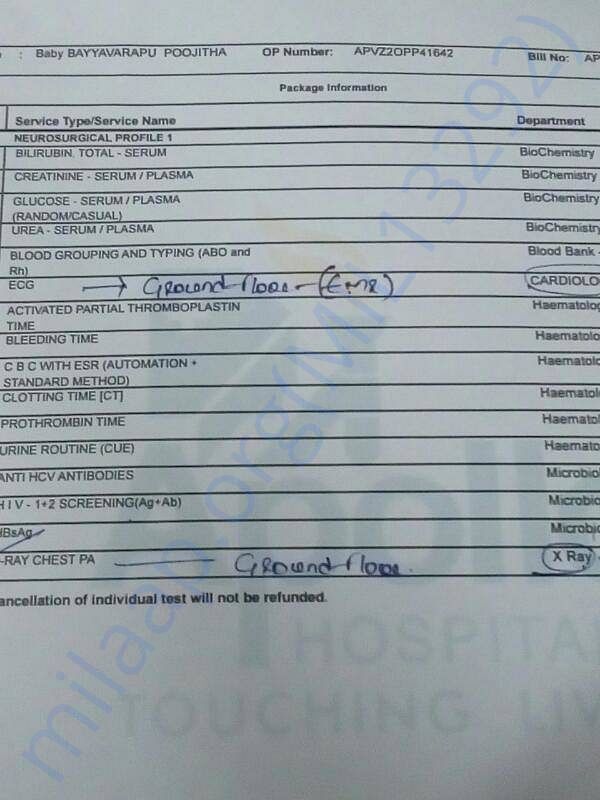 : Baby BAYYAVARAPU POOJITHA OP Number: APVZ2OPP41642 Bill No: AP
Package Information
Service Type/Service Name Department
NEUROSURGICAL PROFILE 1
BILIRUBIN, TOTAL - SERUM BioChemistry
CREATININE - SERUM / PLASMA BioChemistry
GLUCOSE - SERUM / PLASMA BioChemistry
(RANDOM/CASUAL)
UREA - SERUM / PLASMA BioChemistry
BLOOD GROUPING AND TYPING (ABO and Blood Bank -
Rh)
ECG → Ground floor - (EMR) CARDIOLO
ACTIVATED PARTIAL THROMBOPLASTIN Haematolog
TIME
BLEEDING TIME Haematolo
C B C WITH ESR (AUTOMATION + Haematolo
STANDARD METHOD)
CLOTTING TIME [CT] Haematol
PROTHROMBIN TIME Haematol
URINE ROUTINE (CUE) Haemato
ANTI HCV ANTIBODIES Microbiol
H I V - 1+2 SCREENING(Ag+Ab) Microbio
HBsAg Microbio
-RAY CHEST PA Ground floor. X Ray -
ancellation of individual test will not be refunded.
HOSPITA
TOUCHING LIV
milaap.org(MIL13292)